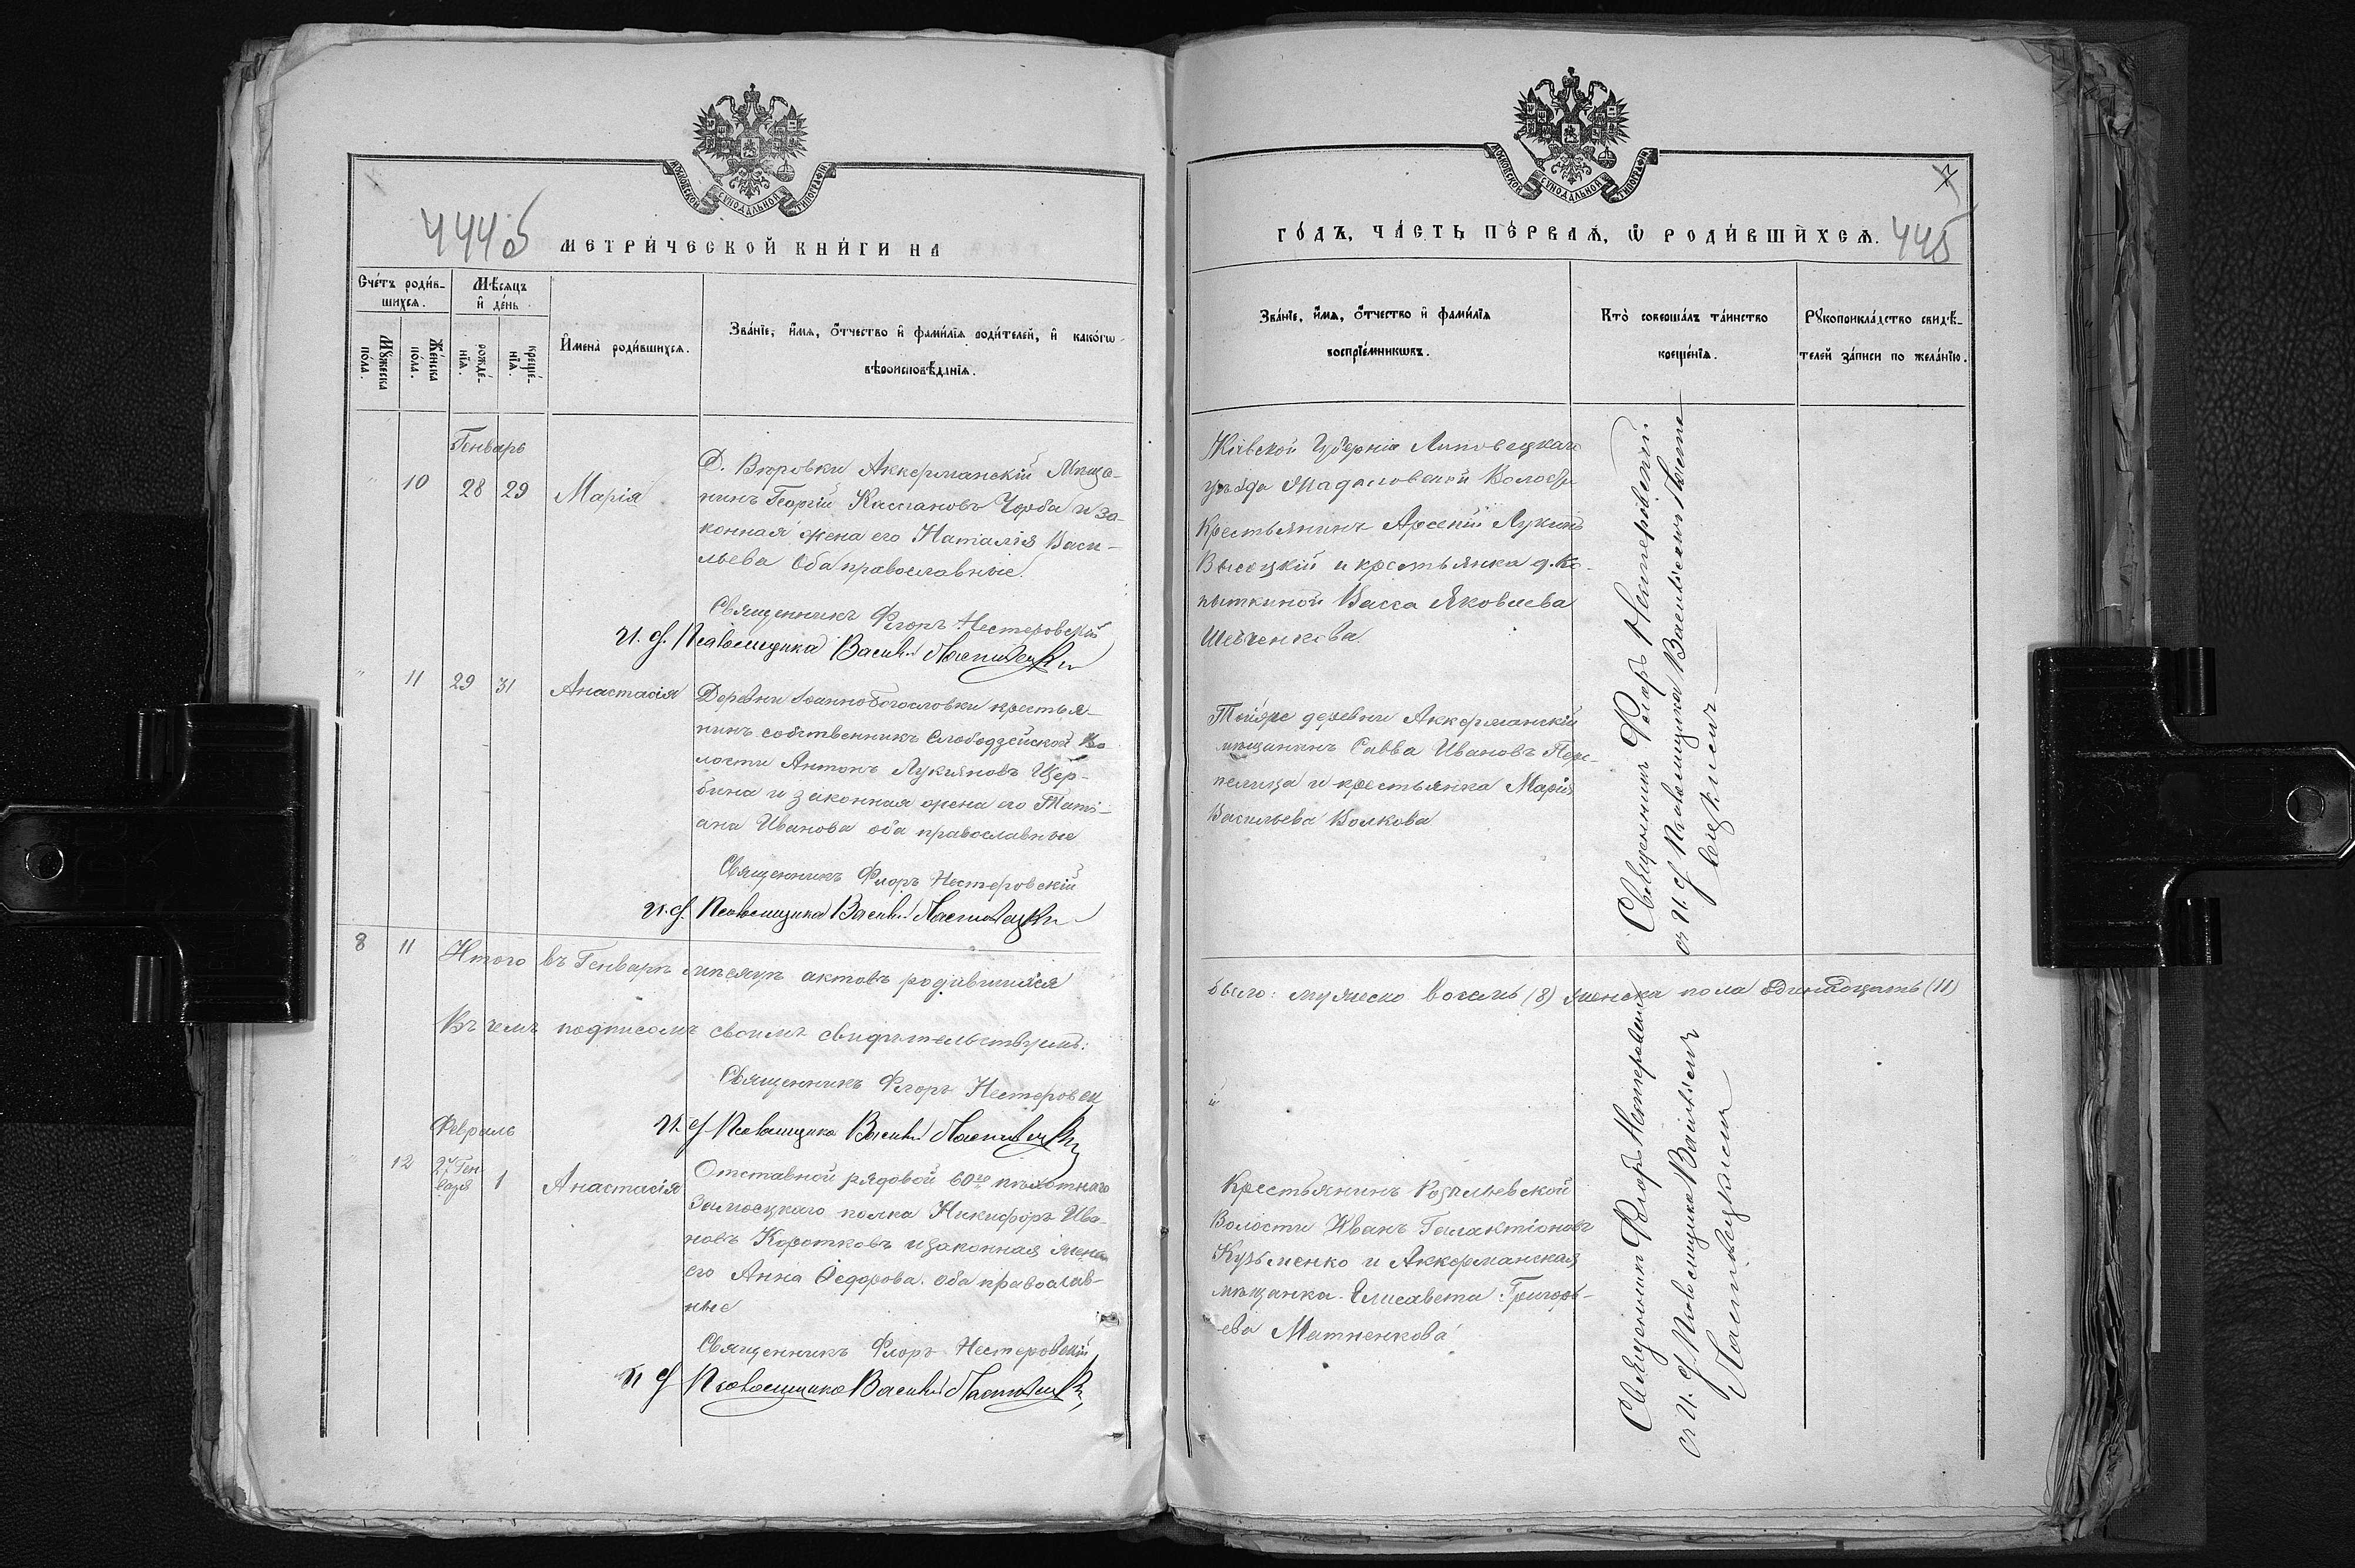 МОСКОВСКОЙ СѴНОДАЛЬНОЙ ТИПОГРАФІИ
444 об
МЕТРИ́ЧЕСКОЙ КНИ́ГИ НА
Счéтъ роди́в-
шихсѧ.
Мѣ́сѧцъ
и҆ дéнь
Мꙋ́жеска
пóла.
Жéнска
пóла.
рождé-
нїѧ.
крещé-
нїѧ.
И҆менà роди́вшихсѧ.
Звáнїе, и҆́мѧ, ѻ҆́тчество и҆ фами́лїѧ роди́телей, и҆ какóгѡ
вѣроисповѣ́данїѧ.
Генварь
" 10 28 29 Марія
Д. Вюровки Аккерманскій Мѣща-
нинъ Георгій Касіановъ Чорба и за-
конная жена его Наталія Васи-
льева Оба православные.
Священникъ Флоръ Нестеровскій
И. д. Псаломщика Василій Ластовецкій
" 11 29 31 Анастасія
Деревни Іоаннобогословки крестья-
нинъ собственникъ Слободзейской Во
лости Антонъ Лукіяновъ Щер-
бина и законная жена его Таті-
ана Иванова оба православные
Священникъ Флоръ Нестеровскій
И. д. Псаломщика Василій Ластовецкій
8 11 Итого въ Генварѣ мѣсяцѣ актовъ родившихся
Въ чемъ подписомъ своимъ свидѣтельствуемъ:
Священникъ Флоръ Нестеровск
И. д. Псаломщика Василій Ластовецкій
Февраль
" 12 Ген
варя 1 Анастасія
Отставной рядовой 60го пѣхотнаго
Замосцкаго полка Никифоръ Ива-
новъ Коротковъ и законная жена
его Анна Ѳедорова. оба православ-
ные
Священникъ Флоръ Нестеровскій
И д Псаломщика Василій Ластовецкій
МОСКОВСКОЙ СѴНОДАЛЬНОЙ ТИПОГРАФІИ
7
ГÓДЪ, ЧÁСТЬ ПÉРВАѦ, Ѡ҆ РОДИ́ВШИХСѦ.
445
Звáнїе, и҆́мѧ, ѻ҆́тчество и҆ фами́лїѧ
воспрїéмникѡвъ.
Ктò совершáлъ тáинство
крещéнїѧ.
Рꙋкоприклáдство свидѣ́-
телей зáписи по желáнїю.
Кіевской Губерніи Липовецкаго
уѣзда Волости
Крестьянинъ Арсеній Лукинъ
Высоцкій и крестьянка д. Ко-
пыткиной Васса Яковлева
Шевченкова
Священникъ Флоръ Нестеровскій
съ И. д. Псаломщика Василіемъ Ласто
вецкимъ
Тойже деревни Аккерманскій
мѣщанинъ Савва Ивановъ Пере-
пелица и крестьянка Марія
Васильева Волкова
было: мужеско восемь (8) женска пола одинадцать (11)
й
Крестьянинъ Розальевской
Волости Иванъ Галактіоновъ
Кузьменко и Аккерманская
мѣщанка Елисавета Григорь-
ева Матненкова
Священникъ Флоръ Нестеровскій
съ И. д. Псаломщика Василіемъ
Ластовецкимъ